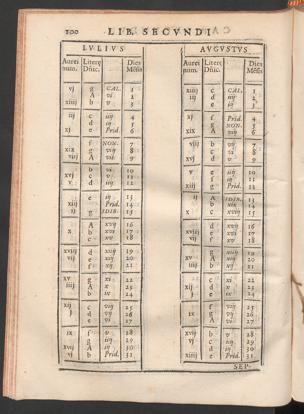 100 LIB. SECVNDI
IVLIVS
Aurei num. Literę Dñic. Dies Mēsis
vj g CAL. 1
A vi 2
xiiij b v 3
iij c iiij 4
d iij 5
xj e Prid. 6
f NON. 7
xix g viij 8
viij A vij 9
b vi 10
xvj c v 11
v d iiij 12
e iij 13
xiij f Prid. 14
ij g IDIB. 15
A xvij 16
x b xvi 17
c xv 18
xviij d xiiij 19
vij e xiij 20
f xij 21
xv g xi 22
iiij A x 23
b ix 24
xij c viij 25
j d vij 26
e vi 27
ix f v 28
g iiij 29
xvij A iij 30
vj b Prid. 31
AVGVSTVS
Aurei num. Literę Dñic. Dies Mēsis
xiiij c CAL. 1
iij d iiij 2
e iij 3
xj f Prid. 4
g NON. 5
A viij 6
viij b vij 7
c vi 8
d v 9
v e iiij 10
f iij 11
xiij g Prid. 12
ij A IDIB. 13
b xix 14
x c xviij 15
d xvij 16
e xvi 17
f xv 18
g xiiij 19
A xiij 20
b xij 21
c xi 22
d x 23
e ix 24
f viij 25
ix g vij 26
A vi 27
b v 28
c iiij 29
d iij 30
xiiij e Prid. 31
SEP-